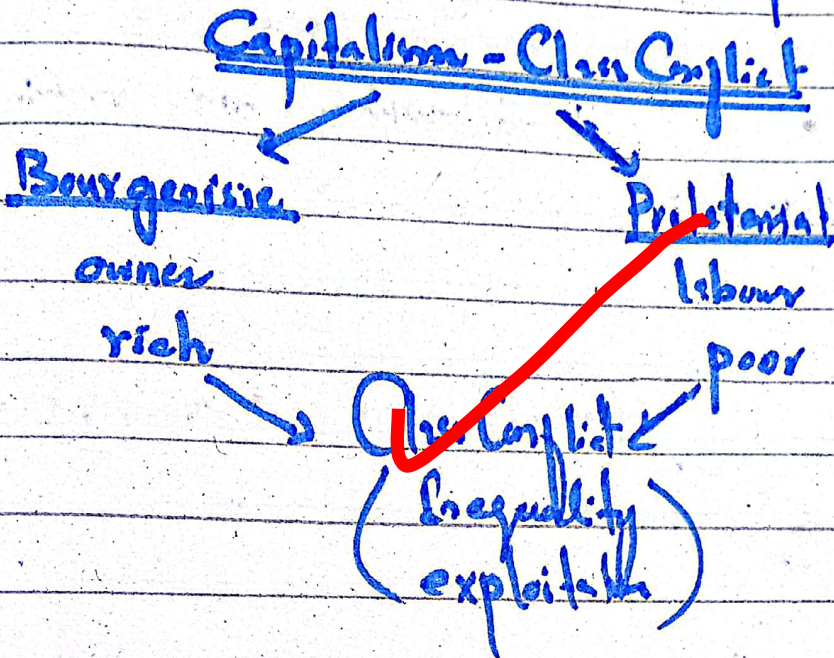 Capitalism - Class Conflict
Bourgeoisie
Proletariat
owner
labour
rich
poor
Class Conflict
(Inequality
exploitation)